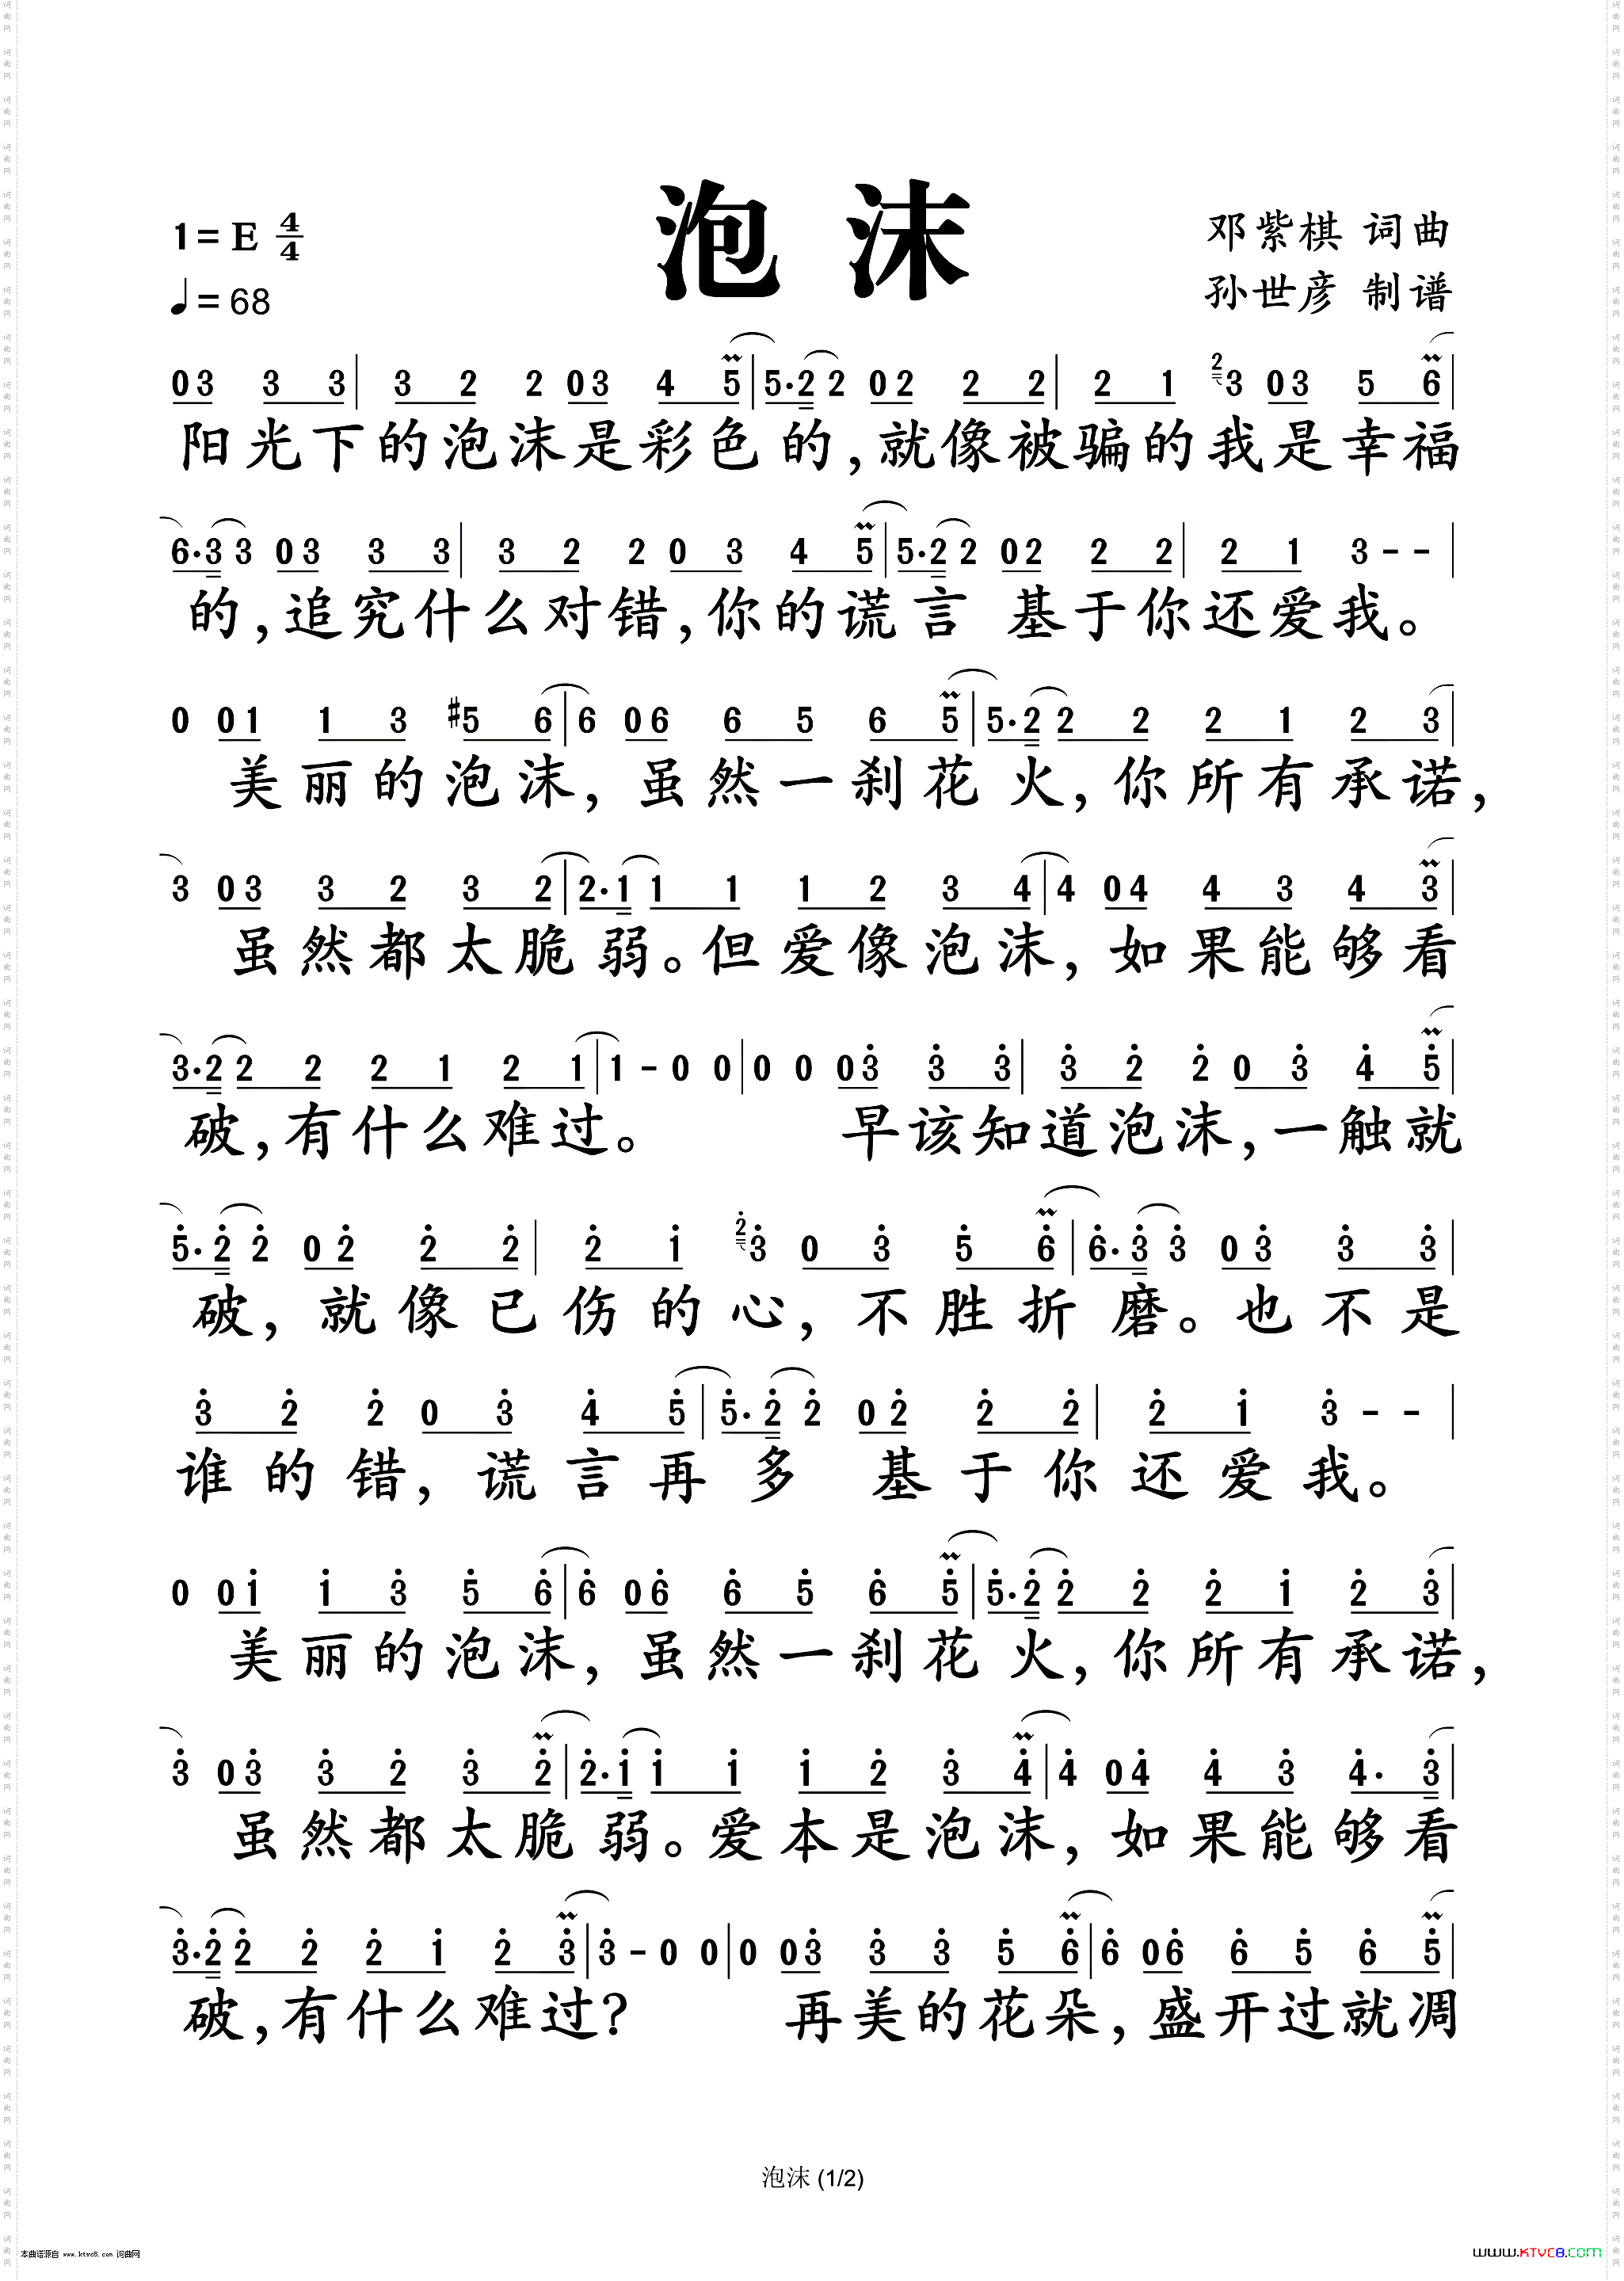 泡沫
1=E 4/4
♩=68
邓紫棋 词曲
孙世彦 制谱
03 3 3 | 3 2 2 03 4 5 | 5·2 2 02 2 2 | 2 1 2 3 03 5 6 |
阳光下的泡沫是彩色的,就像被骗的我是幸福
6·3 3 03 3 3 | 3 2 2 0 3 4 5 | 5·2 2 02 2 2 | 2 1 3 - - |
的,追究什么对错,你的谎言 基于你还爱我。
0 01 1 3 #5 6 | 6 06 6 5 6 5 | 5·2 2 2 2 1 2 3 |
美丽的泡沫,虽然一刹花火,你所有承诺,
3 03 3 2 3 2 | 2·1 1 1 1 2 3 4 | 4 04 4 3 4 3 |
虽然都太脆弱。但爱像泡沫,如果能够看
3·2 2 2 2 1 2 1 | 1 - 0 0 | 0 0 03 3 3 | 3 2 2 0 3 4 5 |
破,有什么难过。 早该知道泡沫,一触就
5·2 2 02 2 2 | 2 1 2 3 0 3 5 6 | 6·3 3 03 3 3 |
破,就像已伤的心,不胜折磨。也不是
3 2 2 0 3 4 5 | 5·2 2 02 2 2 | 2 1 3 - - |
谁的错,谎言再多 基于你还爱我。
0 01 1 3 5 6 | 6 06 6 5 6 5 | 5·2 2 2 2 1 2 3 |
美丽的泡沫,虽然一刹花火,你所有承诺,
3 03 3 2 3 2 | 2·1 1 1 1 2 3 4 | 4 04 4 3 4· 3 |
虽然都太脆弱。爱本是泡沫,如果能够看
3·2 2 2 2 1 2 3 | 3 - 0 0 | 0 03 3 3 5 6 | 6 06 6 5 6 5 |
破,有什么难过? 再美的花朵,盛开过就凋
泡沫 (1/2)
本曲谱源自 www.ktvc8.com 词曲网
www.KTVC8.com